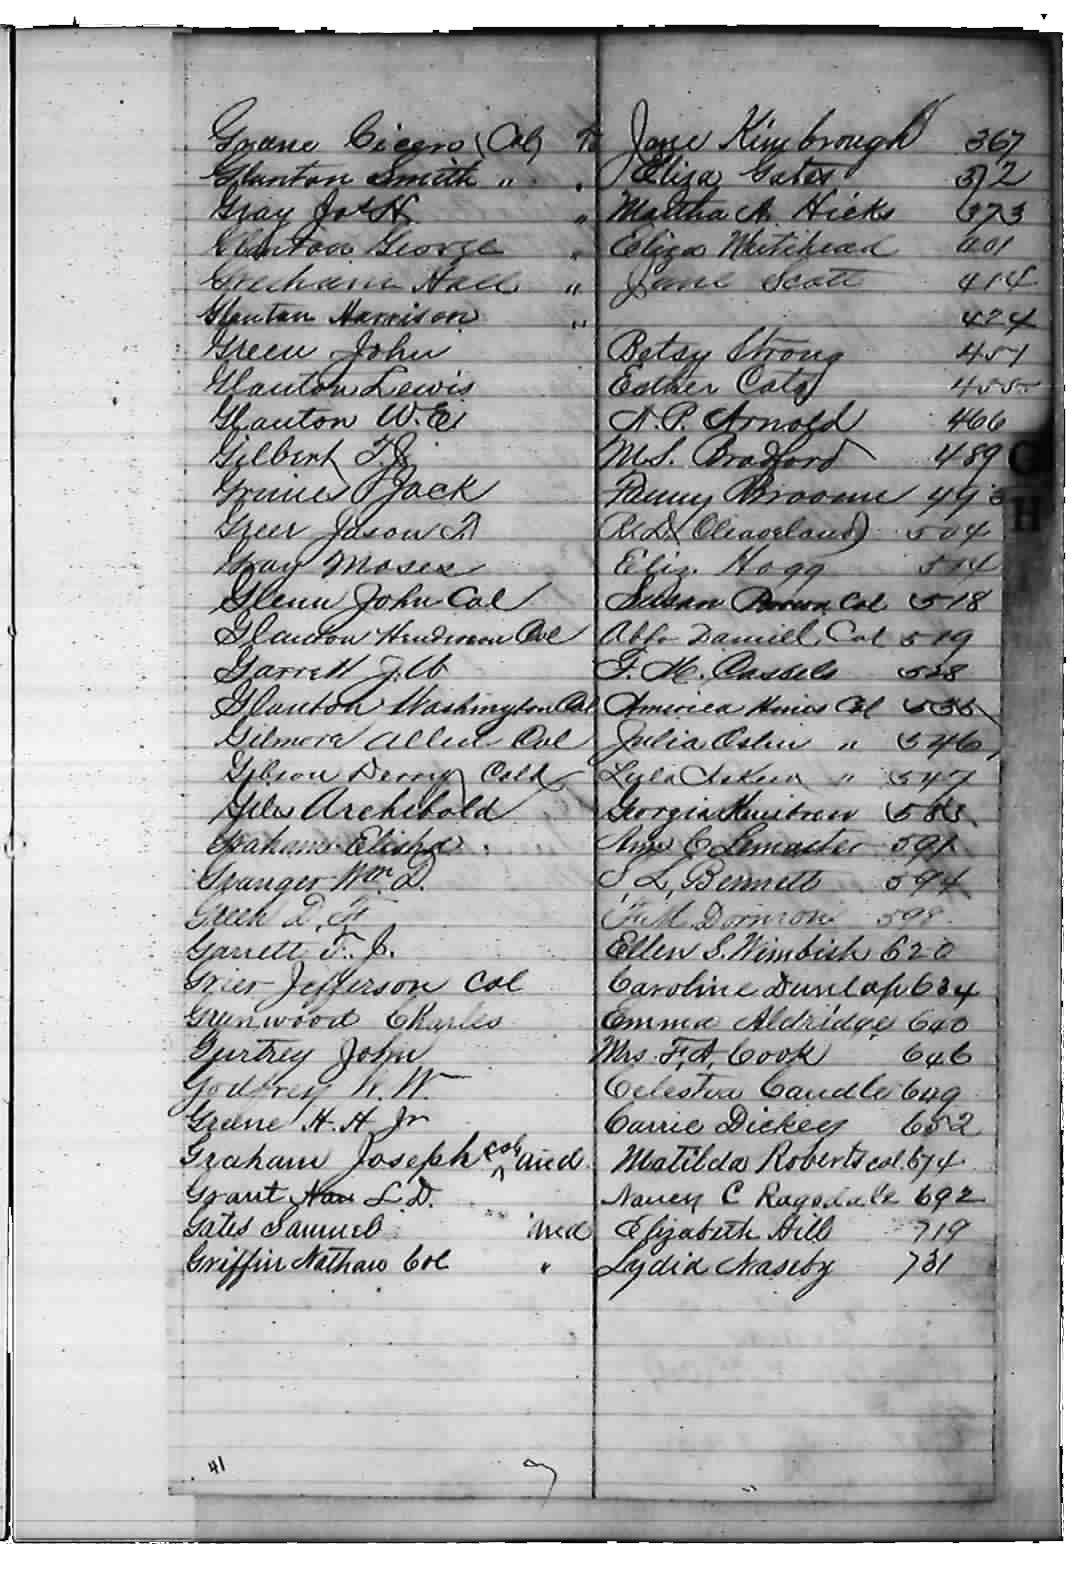 Grane Cicero (Col) To Jane Kimbrough 367
Glanton Smith " " Eliza Gates 372
Gray Jos H. " Martha A. Hicks 373
Glanton George " Eliza Whitehead 401
Grecham Hall " Jane Scott 414
Glanton Harrison " 424
Green John Betsy Strong 451
Glanton Lewis Esther Cato 455
Glanton W. E. N. P. Arnold 466
Gilbert T. J. M. S. Bradford 489
Grimes Jack Fanny Broome 493
Greer Jason T. R. D. Cleaveland 504
Gray Moses Eliz. Hogg 514
Glenn John Col Susan Brown Col 518
Glanton Henderson Col Daniel Col 519
Garrett J. W. F. M. Cassels 528
Glanton Washington Col America Hines Col 535
Gilmore Allen Col Julia Oslin " 546
Gibson Derry Cold Lula " 547
Giles Archibold Georgia 583
Graham Elisha Ann C Lemaster 591
Granger Wm. D. S. L. Bennett 594
Green D. F. F. M. 598
Garrett T. J. Ellen S. Wimbish 620
Grier Jefferson Col Caroline Dunlap 634
Grunwood Charles Emma Aldridge 640
Gurtrey John Mrs. F. A. Cook 646
Godfrey W. W. Celestia Caudle 649
Greene H. H Jr Carrie Dickey 652
Graham Joseph col and Matilda Roberts col. 674
Grant L. D. Nancy C Ragsdale 692
Gates Samuel and Elizabeth Hill 719
Griffin Nathan Col " Lydia Naseby 731
G
H
41